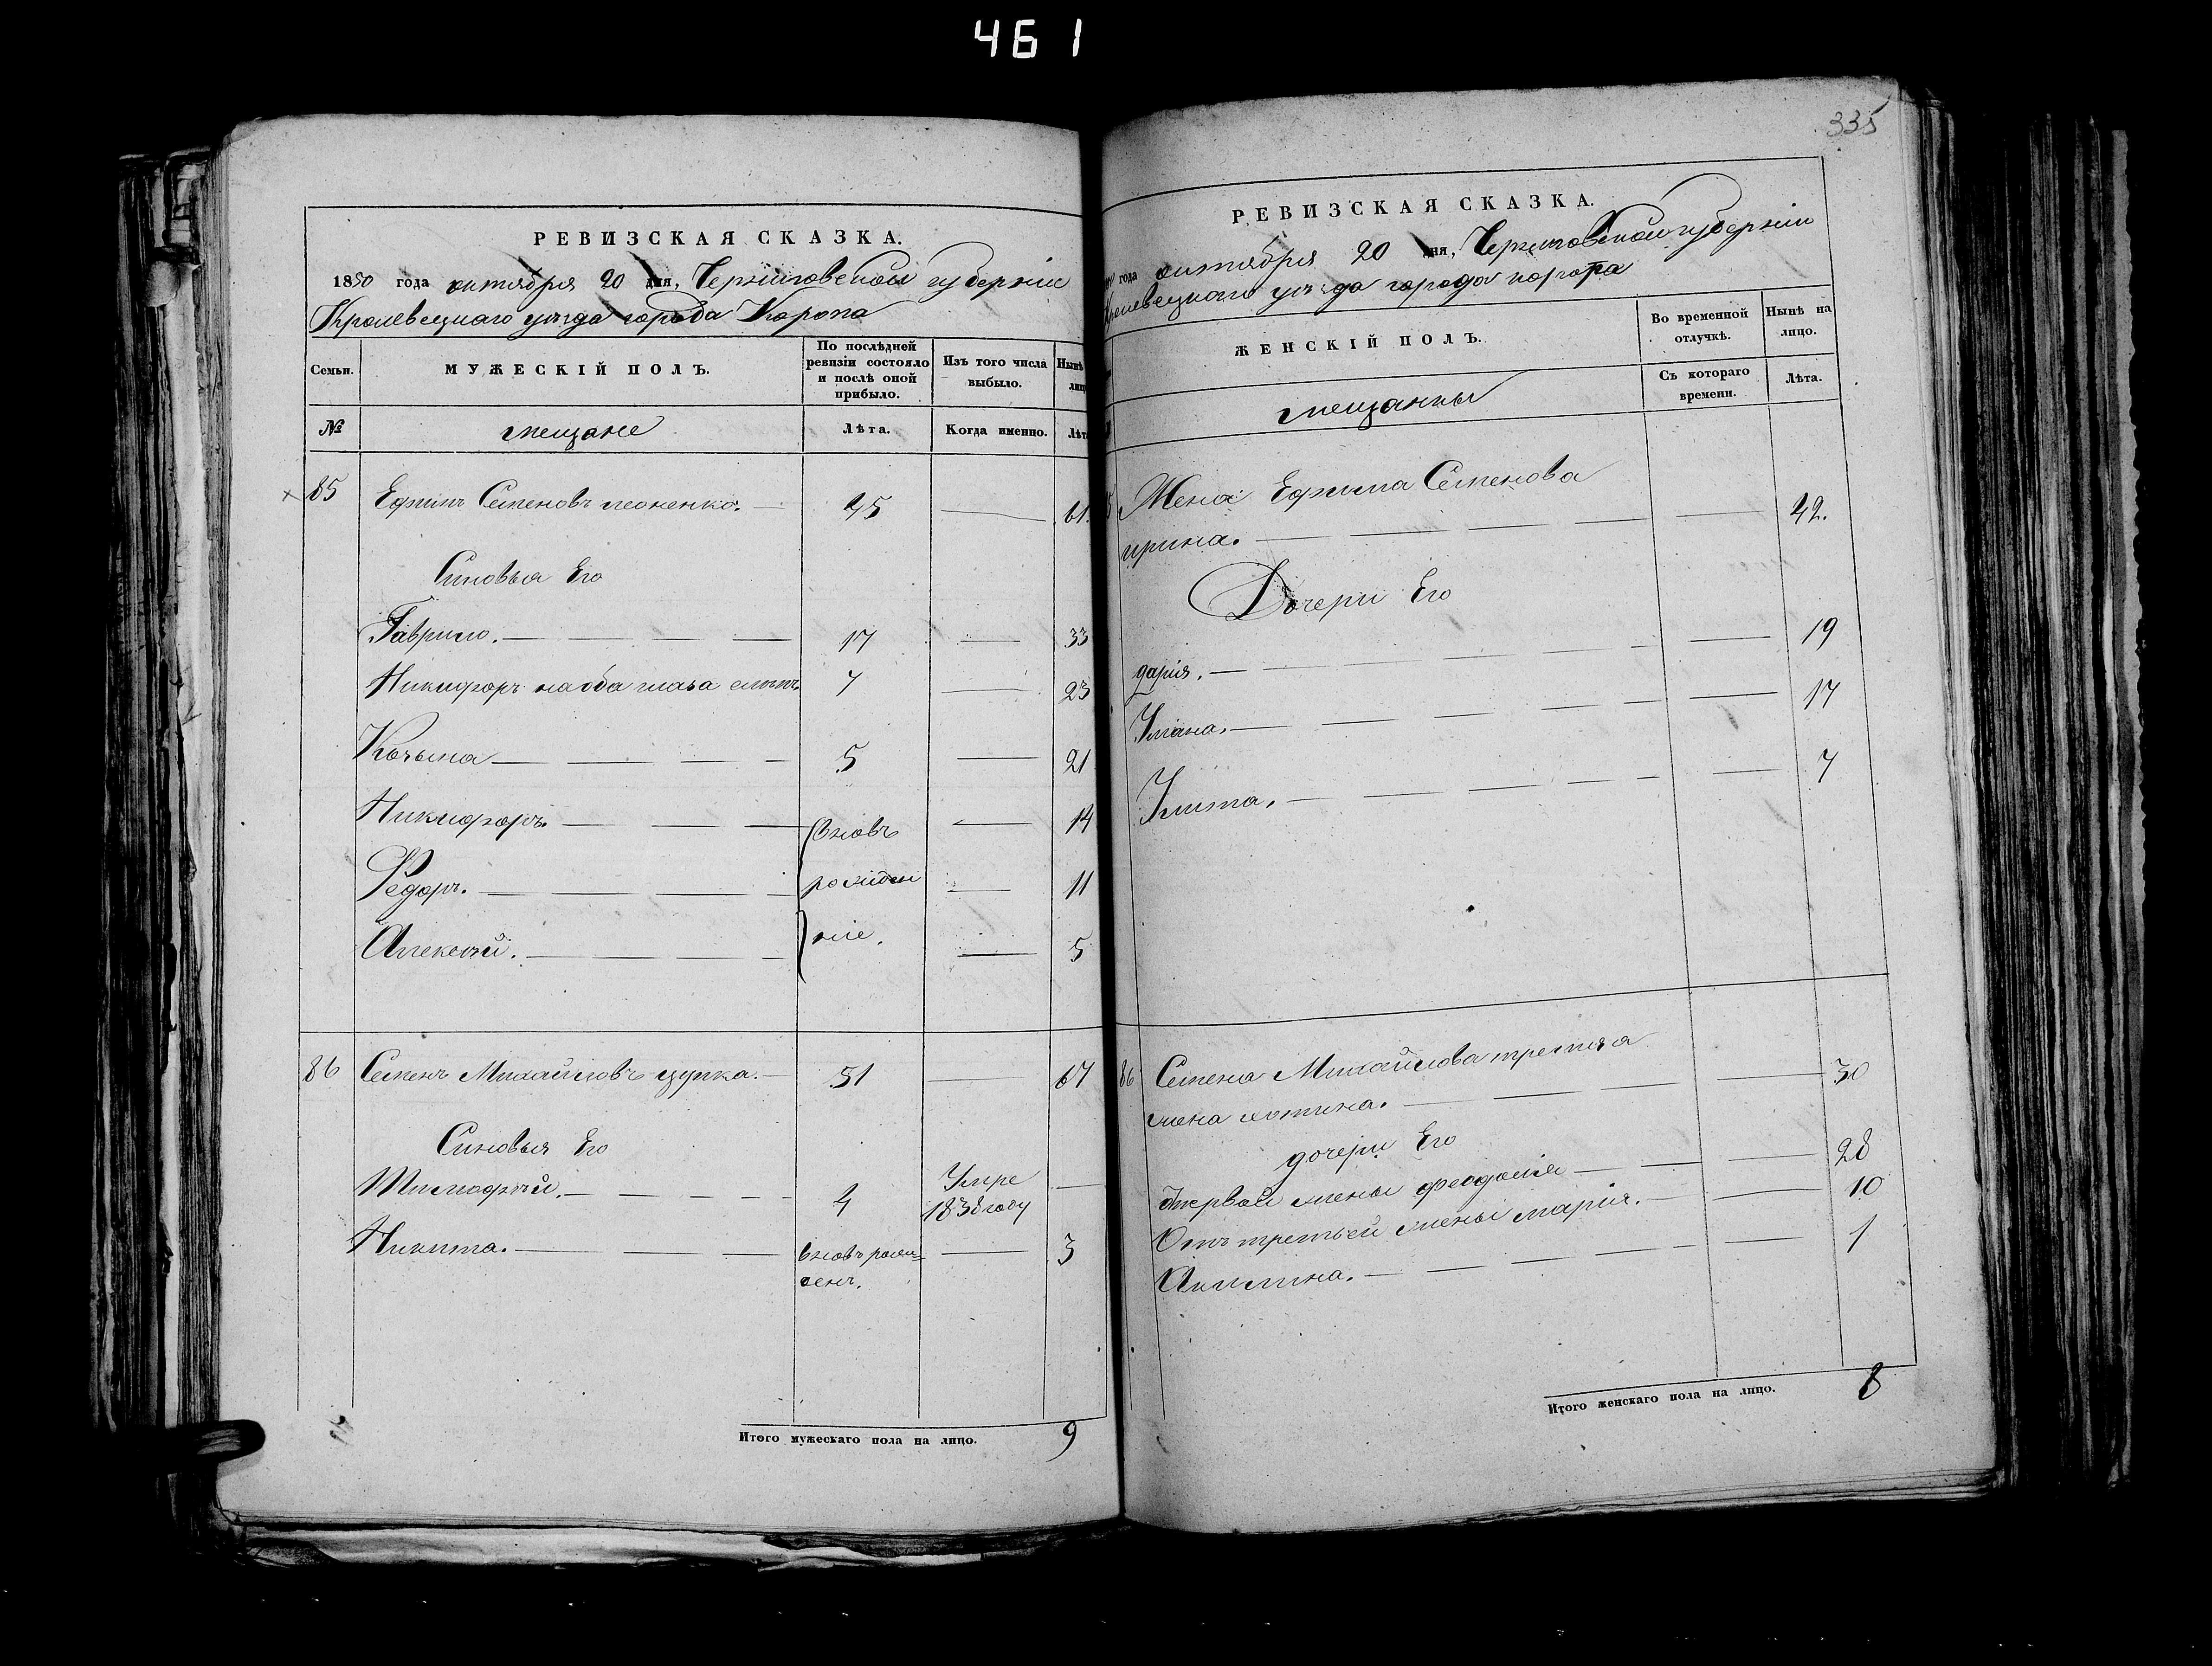 461
РЕВИЗСКАЯ СКАЗКА.
1850 года октября 20 дня, Черниговской губернии
Кролевецкаго уѣзда города Коропа
Семьи. МУЖЕСКІЙ ПОЛЪ. По послѣдней ревизіи состояло и послѣ оной прибыло. Изъ того числа выбыло. Нынѣ
№ мещане Лѣта. Когда именно. Лѣт
85 Ефимъ Семеновъ 45 61.
Синовья Его
Гаврило. 17 33
Никифоръ на оба глаза слѣпъ. 7 23
Козьма 5 21
Никифоръ. вновь 14
Федоръ. рожден 11
Алексѣй. ніе. 5
86 Семенъ Михайловъ цупка. 51 67
Синовья Его
Тимофѣй. 4 Умре 1838 году
Никита. вновь рож= 3
денъ.
Итого мужескаго пола на лицо. 9
335
РЕВИЗСКАЯ СКАЗКА.
года октября 20 дня, Черниговской губерніи
ролевецкаго уѣзда города коропа
ЖЕНСКІЙ ПОЛЪ. Во временной отлучкѣ. Нынѣ на лицо.
мещанки Съ котораго времени. Лѣта.
Жена Ефима Семенова
ирина. 42.
Дочери Его
дарія. 19
Уляна. 17
Улита. 7
86 Семена Михайлова третья
жена 30
дочери Его
первой жены феодосія 28
Отъ третьей жены марія. 10
Акилина. 1
Итого женскаго пола на лицо. 8